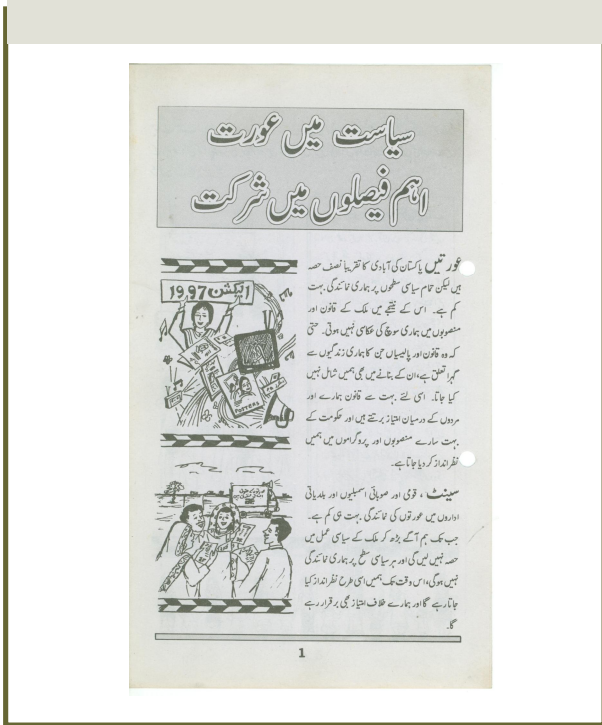 سیاست میں عورت
اہم فیصلوں میں شرکت
عورتیں پاکستان کی آبادی کا تقریباً نصف حصہ
ہیں لیکن تمام سیاسی سطحوں پر ہماری نمائندگی بہت
کم ہے۔ اس کے نتیجے میں ملک کے قانون اور
منصوبوں میں ہماری سوچ کی عکاسی نہیں ہوتی۔ حتیٰ
کہ وہ قانون اور پالیسیاں جن کا ہماری زندگیوں سے
گہرا تعلق ہے، ان کے بنانے میں بھی ہمیں شامل نہیں
کیا جاتا۔ اسی لئے بہت سے قانون ہمارے اور
مردوں کے درمیان امتیاز برتتے ہیں اور حکومت کے
بہت سارے منصوبوں اور پروگراموں میں ہمیں
نظرانداز کر دیا جاتا ہے۔
سینٹ ، قومی اور صوبائی اسمبلیوں اور بلدیاتی
اداروں میں عورتوں کی نمائندگی بہت ہی کم ہے۔
جب تک ہم آگے بڑھ کر ملک کے سیاسی عمل میں
حصہ نہیں لیں گی اور ہر سیاسی سطح پر ہماری نمائندگی
نہیں ہوگی، اس وقت تک ہمیں اسی طرح نظرانداز کیا
جاتا رہے گا اور ہمارے خلاف امتیاز بھی برقرار رہے
گا۔
الیکشن 1997
POSTERS
1